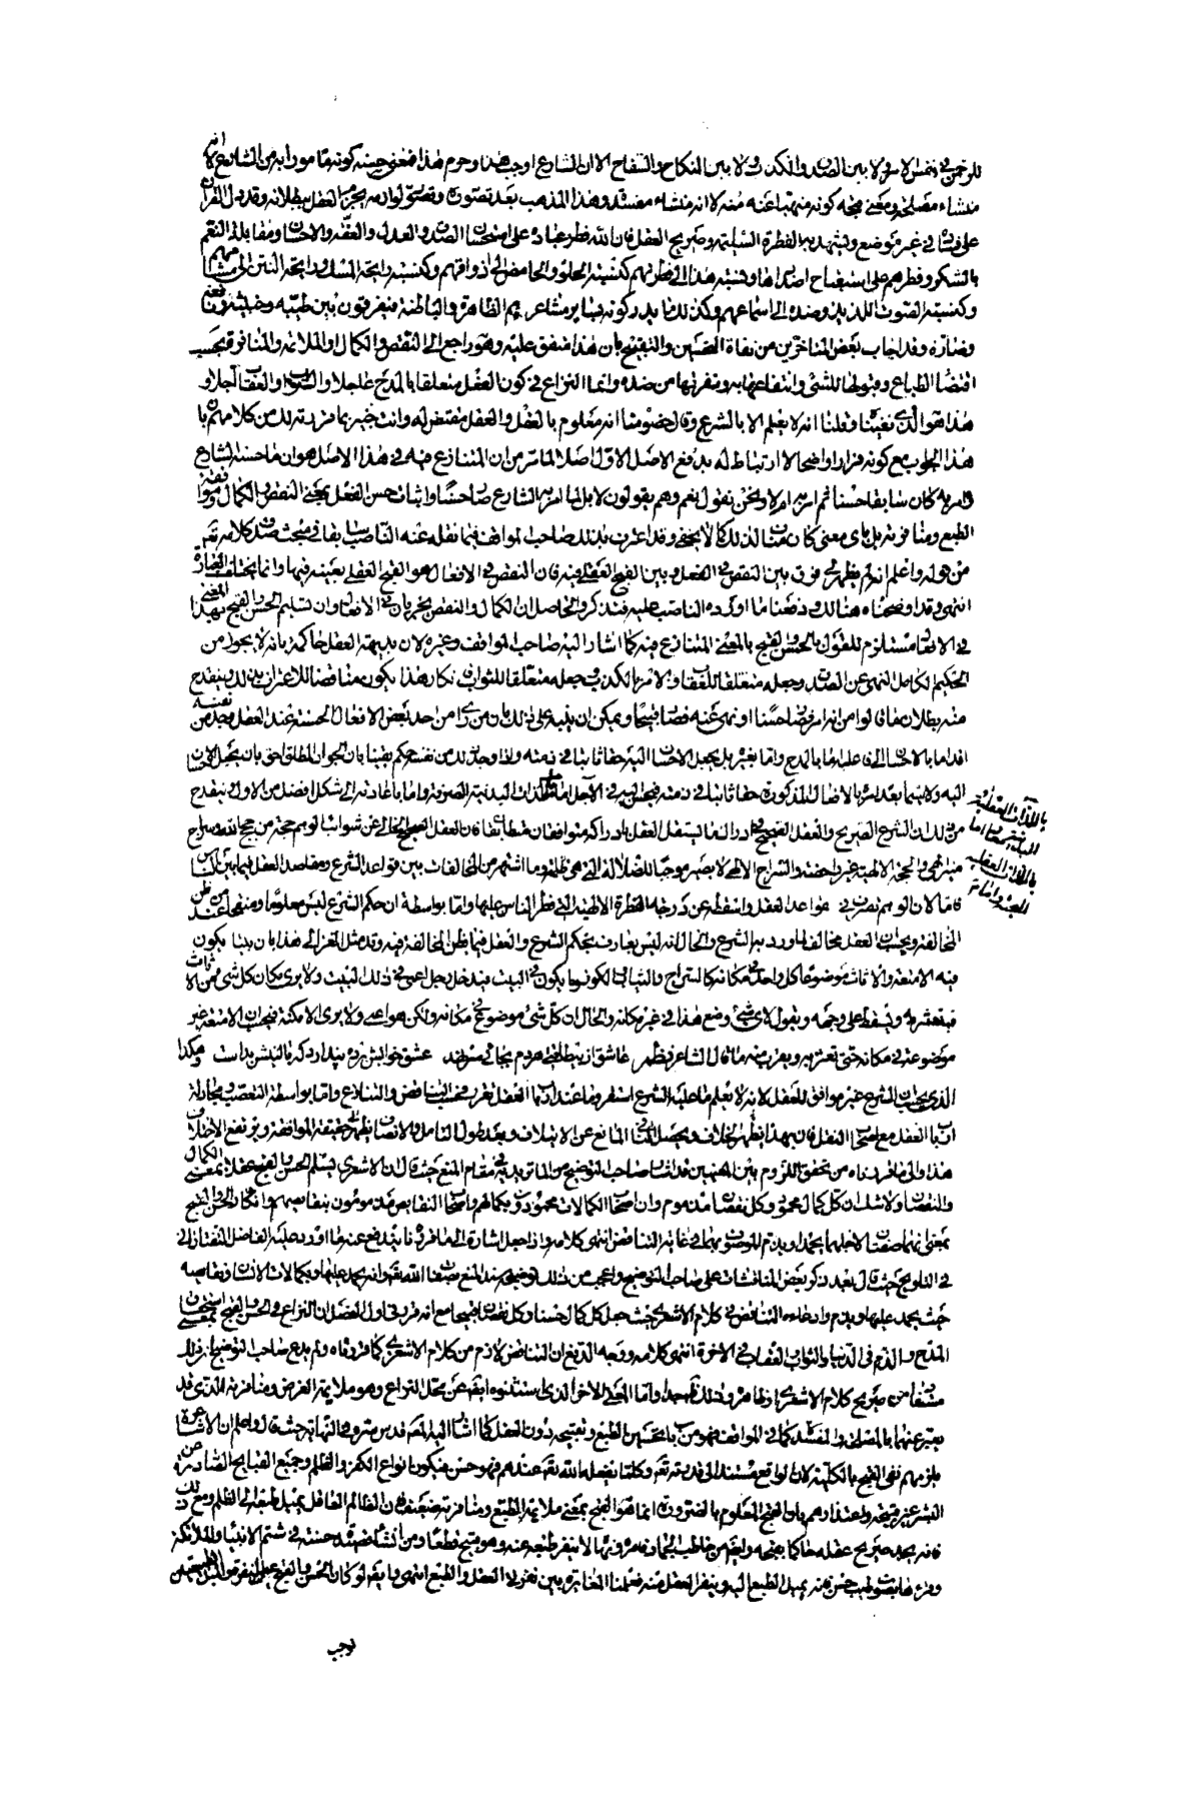 للرحمن في نفس الامر ولا بين الصدق والكذب ولا بين النكاح والسفاح الا ان الشارع اوجب هذا وحرم هذا فمعنى حسنه كونه مامورا به من الشارع لا انه
منشاء مصلحة ومعنى قبحه كونه منهيا عنه منه لا انه منشاء مفسدة وهذا المذهب بعد تصوره وتصور لوازمه يجزم العقل ببطلانه وقد دل القران
على فساده في غير موضع ويشهد به الفطرة السليمة وصريح العقل فان الله فطر عباده على استحسان الصدق والعدل والعفة والاحسان ومقابلة النعم
بالشكر وفطرهم على استقباح اضدادها ونسبة هذا الى فطرهم كنسبة الحلو والحامض الى اذواقهم وكنسبة رايحة المسك ورايحة النتن الى مشامهم
وكنسبة الصوت اللذيذ وضده الى اسماعهم وكذلك ما يدركونه بمشاعرهم الظاهرة والباطنة فيفرقون بين طيبه وخبيثه ونافعه
وضاره وقد اجاب بعض المتاخرين من نفاة التحسين والتقبيح بان هذا متفق عليه وهو راجع الى النقص والكمال او الملائمة والمنافرة بحسب
اقتضاء الطباع وقبولها للشئ وانتفاعها به ونفرتها من ضده وانما النزاع في كون الفعل متعلقا بالمدح عاجلا والثواب والعقاب آجلا و
هذا هو الذي نفيناه وقلنا انه لا يعلم الا بالشرع وقال خصومنا انه معلوم بالعقل والعقل مقتض له وانت خبير بما قررته لك من كلامهم بان
هذا الجواب مع كونه فرارا واضحا لا ارتباط له بدفع الاصل الاول اصلا لما مر من ان المتنازع فيه في هذا الاصل هو ان ما حسنه الشارع
وامر به كان سابقا حسنا ثم امر به ام لا ونحن نقول نعم وهم يقولون لا بل لما امر به الشارع صار حسنا واثبات حسن الفعل بمعنى النقص والكمال وموافقة
الطبع ومنافرته بل باى معنى كان مناف لذلك كما لا يخفى وقد اعترف بذلك صاحب المواقف فيما نقله عنه الناصب سابقا في مبحث صدق كلامه تعالى
من قوله واعلم انه لم يظهر لي فرق بين النقص في الفعل وبين القبح العقلي فيه فان النقص في الافعال هو القبح العقلي بعينه فيها وانما يختلف العبارة
انتهى وقد اوضحناه هنالك ودفعنا ما اورده الناصب عليه فتذكر والحاصل ان الكمال والنقص يجريان في الافعال وان تسليم الحسن والقبح بهذا المعنى
في الافعال مستلزم للقول بالحسن والقبح بالمعنى المتنازع فيه كما اشار اليه صاحب المواقف وغيره لان بديهة العقل حاكمة بانه لا يجوز من
الحكيم الكامل النهي عن الصدق وجعله متعلقا للعقاب والامر بالكذب وجعله متعلقا للثواب انكار هذا يكون مناقضا للاعتراف بذلك وينقدح
منه بطلان ما قالوا من انه امر فصار حسنا او نهى عنه فصار قبيحا ويمكن ان ينبه على ذلك بان من راى من احد بعض الافعال الحسنة عند العقل وجد من نفسه
اقداما بالاحسان الى فاعله اما بالمدح واما بغيره بل يجعل الاحسان اليه حقا ثابتا في ذمته واذا وجد ذلك من نفسه حكم يقينا بان الجواد المطلق احق بان يجعل الاحسان
اليه ولا سيما بعد امره بالافعال المذكورة حقا ثابتا في ذمته فيحسن اليه في الاجل اما باللذات البدنية الصورية واما باعادته الى شكل افضل من الاول وينقدح
من ذلك ان الشرع الصريح والعقل الصحيح في ادراك ما يستقل العقل بادراكه متوافقان متطابقان فان العقل الصحيح الخالي عن شوائب الوهم حجة من حجج الله وسراج
منير فهو والحجة الالهية غير داحضة والسراج الالهي لا يصير موجبا للضلالة التي هي ظلمة وما اشتهر من المخالفات بين قواعد الشرع ومقاصد العقل فيما بين الناس
فاما لان الوهم تصرف في قواعد العقل واسقطه عن درجة الفطرة الالهية التي فطر الناس عليها واما بواسطة ان حكم الشرع ليس معلوما ومنقحا عند من ظن
المخالفة ويحسب ان العقل مخالف لما ورد به الشرع والحال انه ليس بعارف بحكم الشرع والعقل فيما يظن المخالفة فيه وقد مثل الغزالي هذا بان بيتا يكون
فيه الامتعة والاثاث موضوعا كل واحد في مكانه كالسراج والثياب الكوز وما يكون في البيت فيدخل رجل اعمى في ذلك البيت ولا يرى مكان كل شئ من الاثاث
فيتعثر به ويسقط على وجهه ويقول لاى شئ وضع هذا في غير مكانه والحال ان كل شئ موضوع في مكانه ولكن هو اعمى ولا يرى الامكنة فيحسب الامتعة غير
موضوعة في مكانه حتى تعثر به ويقرب منه ما قال الشاعر نظم عاشق از بيطاقتي هر دم بجائي سر نهد عشق خوابش نزده پندارد كه بالينش بد است وهكذا
الذي يحسب ان الشرع غير موافق للعقل لانه لا يعلم ما عليه الشرع استقر وما عند ارباب العقل تقرر فيحسب التناقض والتنازع واما بواسطة التعصب ومجادلة
ارباب العقل مع اصحاب النقل فان بهذا يظهر الخلاف ويحصل المانع عن الائتلاف وبعد طول التامل والانصاف يظهر حقيقة الموافقة ويرتفع الاختلاف
هذا والى ما قررناه من تحقق اللزوم بين المعنيين قد اشار صاحب التوضيح من الماتريدية في مقام المنع حيث قال ان الاشعري يسلم الحسن والقبح عقلا بمعنى الكمال
والنقصان ولا شك ان كل كمال محمود وكل نقصان مذموم وان اصحاب الكمالات محمودون بكمالهم واصحاب النقايص مذمومون بنقايصهم وانكاره الحسن والقبح
بمعنى انهما صفتان لاجلهما يحمد او يذم الموصوف بهما في غاية التناقض انتهى كلامه واذا جعل اشارة الى ما قررنا يندفع عنه ما اورد عليه الفاضل التفتازاني
في التلويح حيث قال بعد ذكر بعض المناقشات على صاحب التوضيح واعجب من ذلك توضيحه سند المنع بصفات الله تعالى وانه يحمد عليها وبكمالات الانسان ونقايصه
حيث يحمد عليها ويذم وادعاءه التناقض في كلام الاشعري حيث جعل كل كمال حسنا وكل نقصان قبيحا مع انه قرر في اول الفصل ان النزاع في الحسن والقبح بمعنى استحقاق
المدح والذم في الدنيا والثواب والعقاب في الاخرة انتهى كلامه ووجه الدفع ان التناقض لازم من كلام الاشعري كما قررناه ولم يدع صاحب التوضيح ان ذلك
مستفاد من صريح كلام الاشعري او ظاهره وذلك ظاهر جدا واما المعنى الاخر الذي استثنوه ايضا عن محل النزاع وهو ملايمة الغرض ومنافرته الذي قد
يعبر عنهما بالمصلحة والمفسدة كما في المواقف فهو من باب تحسين الطبع وتقبيحه دون العقل كما اشار اليه المصنف قدس سره في النهاية حيث قال واعلم ان الاشاعرة
يلزمهم نفي القبح بالكلية لان الواقع مستند الى قدرته تعالى وكلما يفعله الله تعالى عندهم فهو حسن فيكون انواع الكفر والظلم وجميع القبايح الصادرة عن
البشر غير قبيحة واعتذارهم بان القبح المعلوم بالضرورة انما هو القبح بمعنى ملايمة الطبع ومنافرته ضعيف فان الظالم العاقل يميل طبعه الى الظلم ومع ذلك
فانه يجد صريح عقله حاكما بقبحه وايضا من خاطب الجماد وامره ونهاه لا ينفر طبعه عنه وهو قبيح قطعا ومن انشا قصيدة حسنة في شتم الانبياء والملائكة
وقرءها بصوت طيب حسن فانه يميل الطبع اليه وينفر العقل منه فعلمنا المغايرة بين نفرة العقل والطبع انتهى وايضا لو كان الحسن والقبح على الفرض والتقدير
باللذات العقلية
نوجب